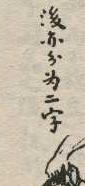 後亦分为二字